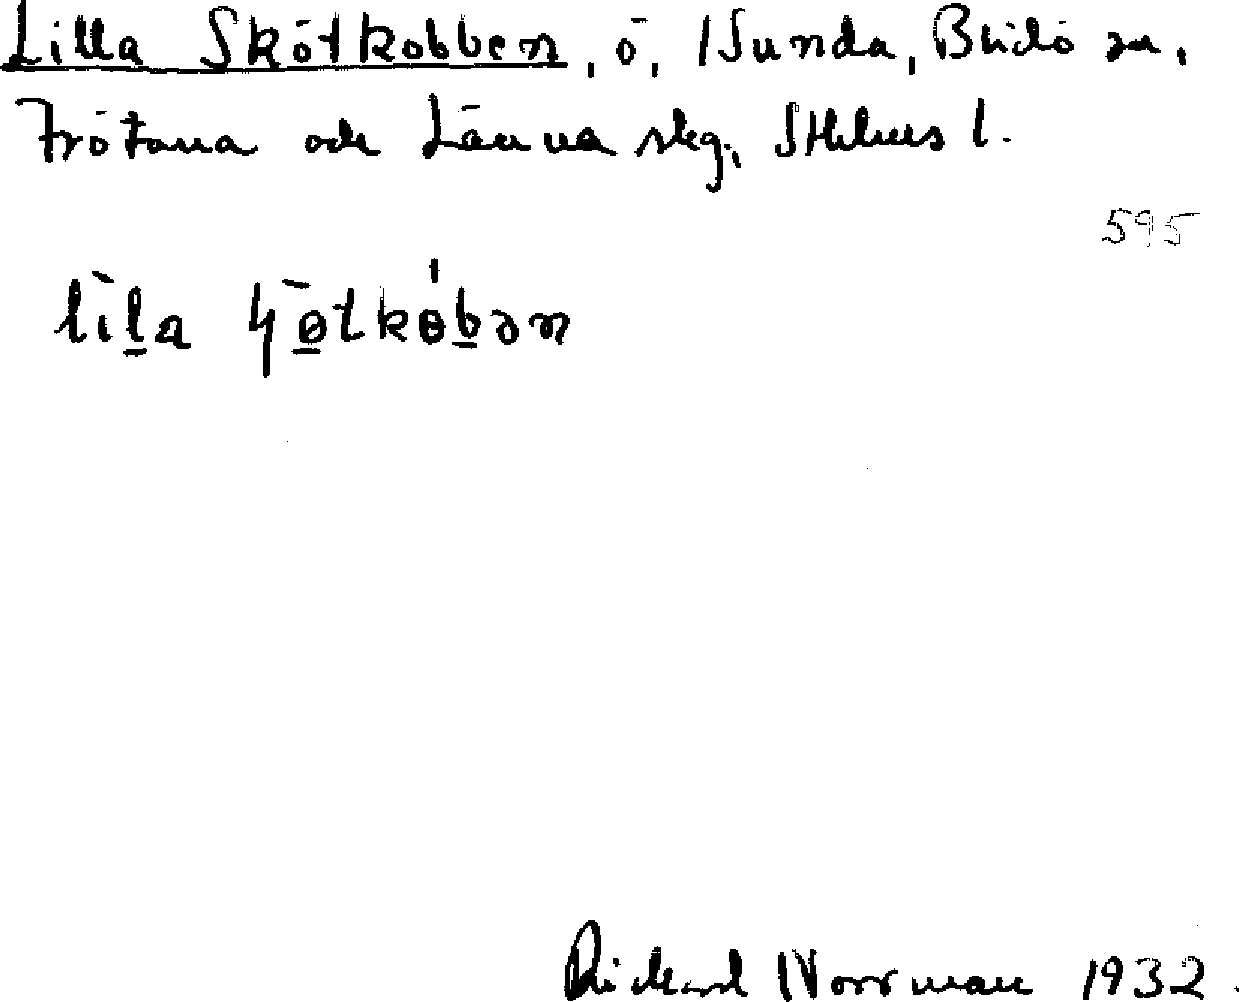 Lilla Skötkobben, ö, Sunda, Blidö sn,
Frötuna och Länna skg, Sthlms l.
595
lìla ɧø̄tkɵ́bən
Rickard Norrman 1932.